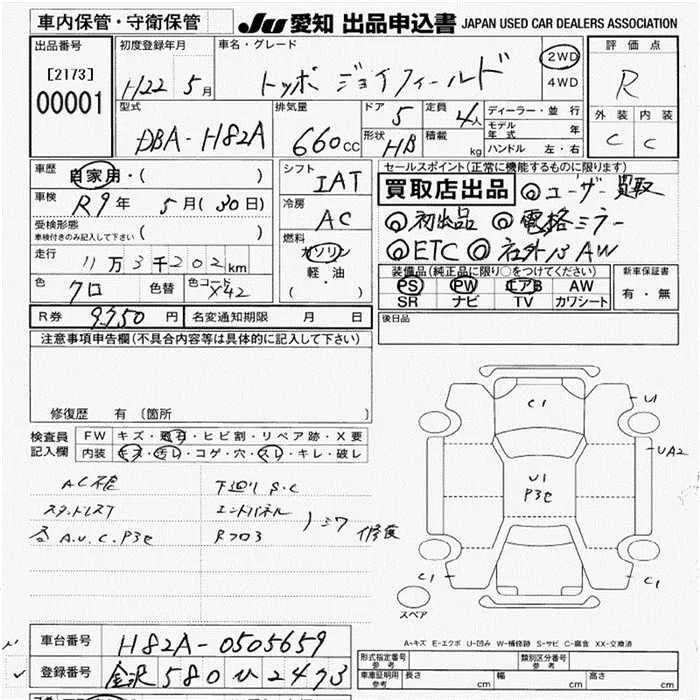 車内保管・守衛保管
JU 愛知 出品申込書 JAPAN USED CAR DEALERS ASSOCIATION
出品番号 初度登録年月 車名・グレード 評価点
[2173] H22年 5月 トッポ ジョイフィールド 2WD R
00001 4WD
型式 排気量 ドア 定員 ディーラー・並行 外装 内装
DBA-H82A 660cc 5 4人 モデル年式 年 C C
形状 HB 積載 kg ハンドル 左・右
車歴 自家用・( ) シフト IAT セールスポイント(正常に機能するものに限ります)
車検 R9年 5月(30日) 冷房 AC 買取店出品 ◎ユーザー買取
受検形態 ( ) ◎初出品 ◎電格ミラー
車検付きのみ記入して下さい
走行 11万3千202km 燃料 ガソリン ◎ETC ◎社外13AW
軽・油
( ・ )
装備品(純正品に限り○をつけてください) 新車保証書
色 クロ 色替 色コード X42 PS PW エアB AW 有・無
SR ナビ TV カワシート
R券 9350円 名変通知期限 月 日 後日品
注意事項申告欄(不具合内容等は具体的に記入して下さい)
修復歴 有 〔箇所
検査員 FW キズ・飛石・ヒビ割・リペア跡・X要
記入欄 内装 キズ・汚レ・コゲ・穴・スレ・キレ・破レ
下廻りS・C
A.U.C.P3セ
シワ
修復
C1
U1
UA2
U1
P3セ
C1
C1
スペア
A-キズ E-エクボ U-凹み W-補修跡 S-サビ C-腐食 XX-交換済
車台番号 H82A-0505659
登録番号 金沢 580 ひ 2473
形式指定番号 参考 類別区分番号 参考
車庫証明用 参考 長さ cm 幅 cm 高さ cm